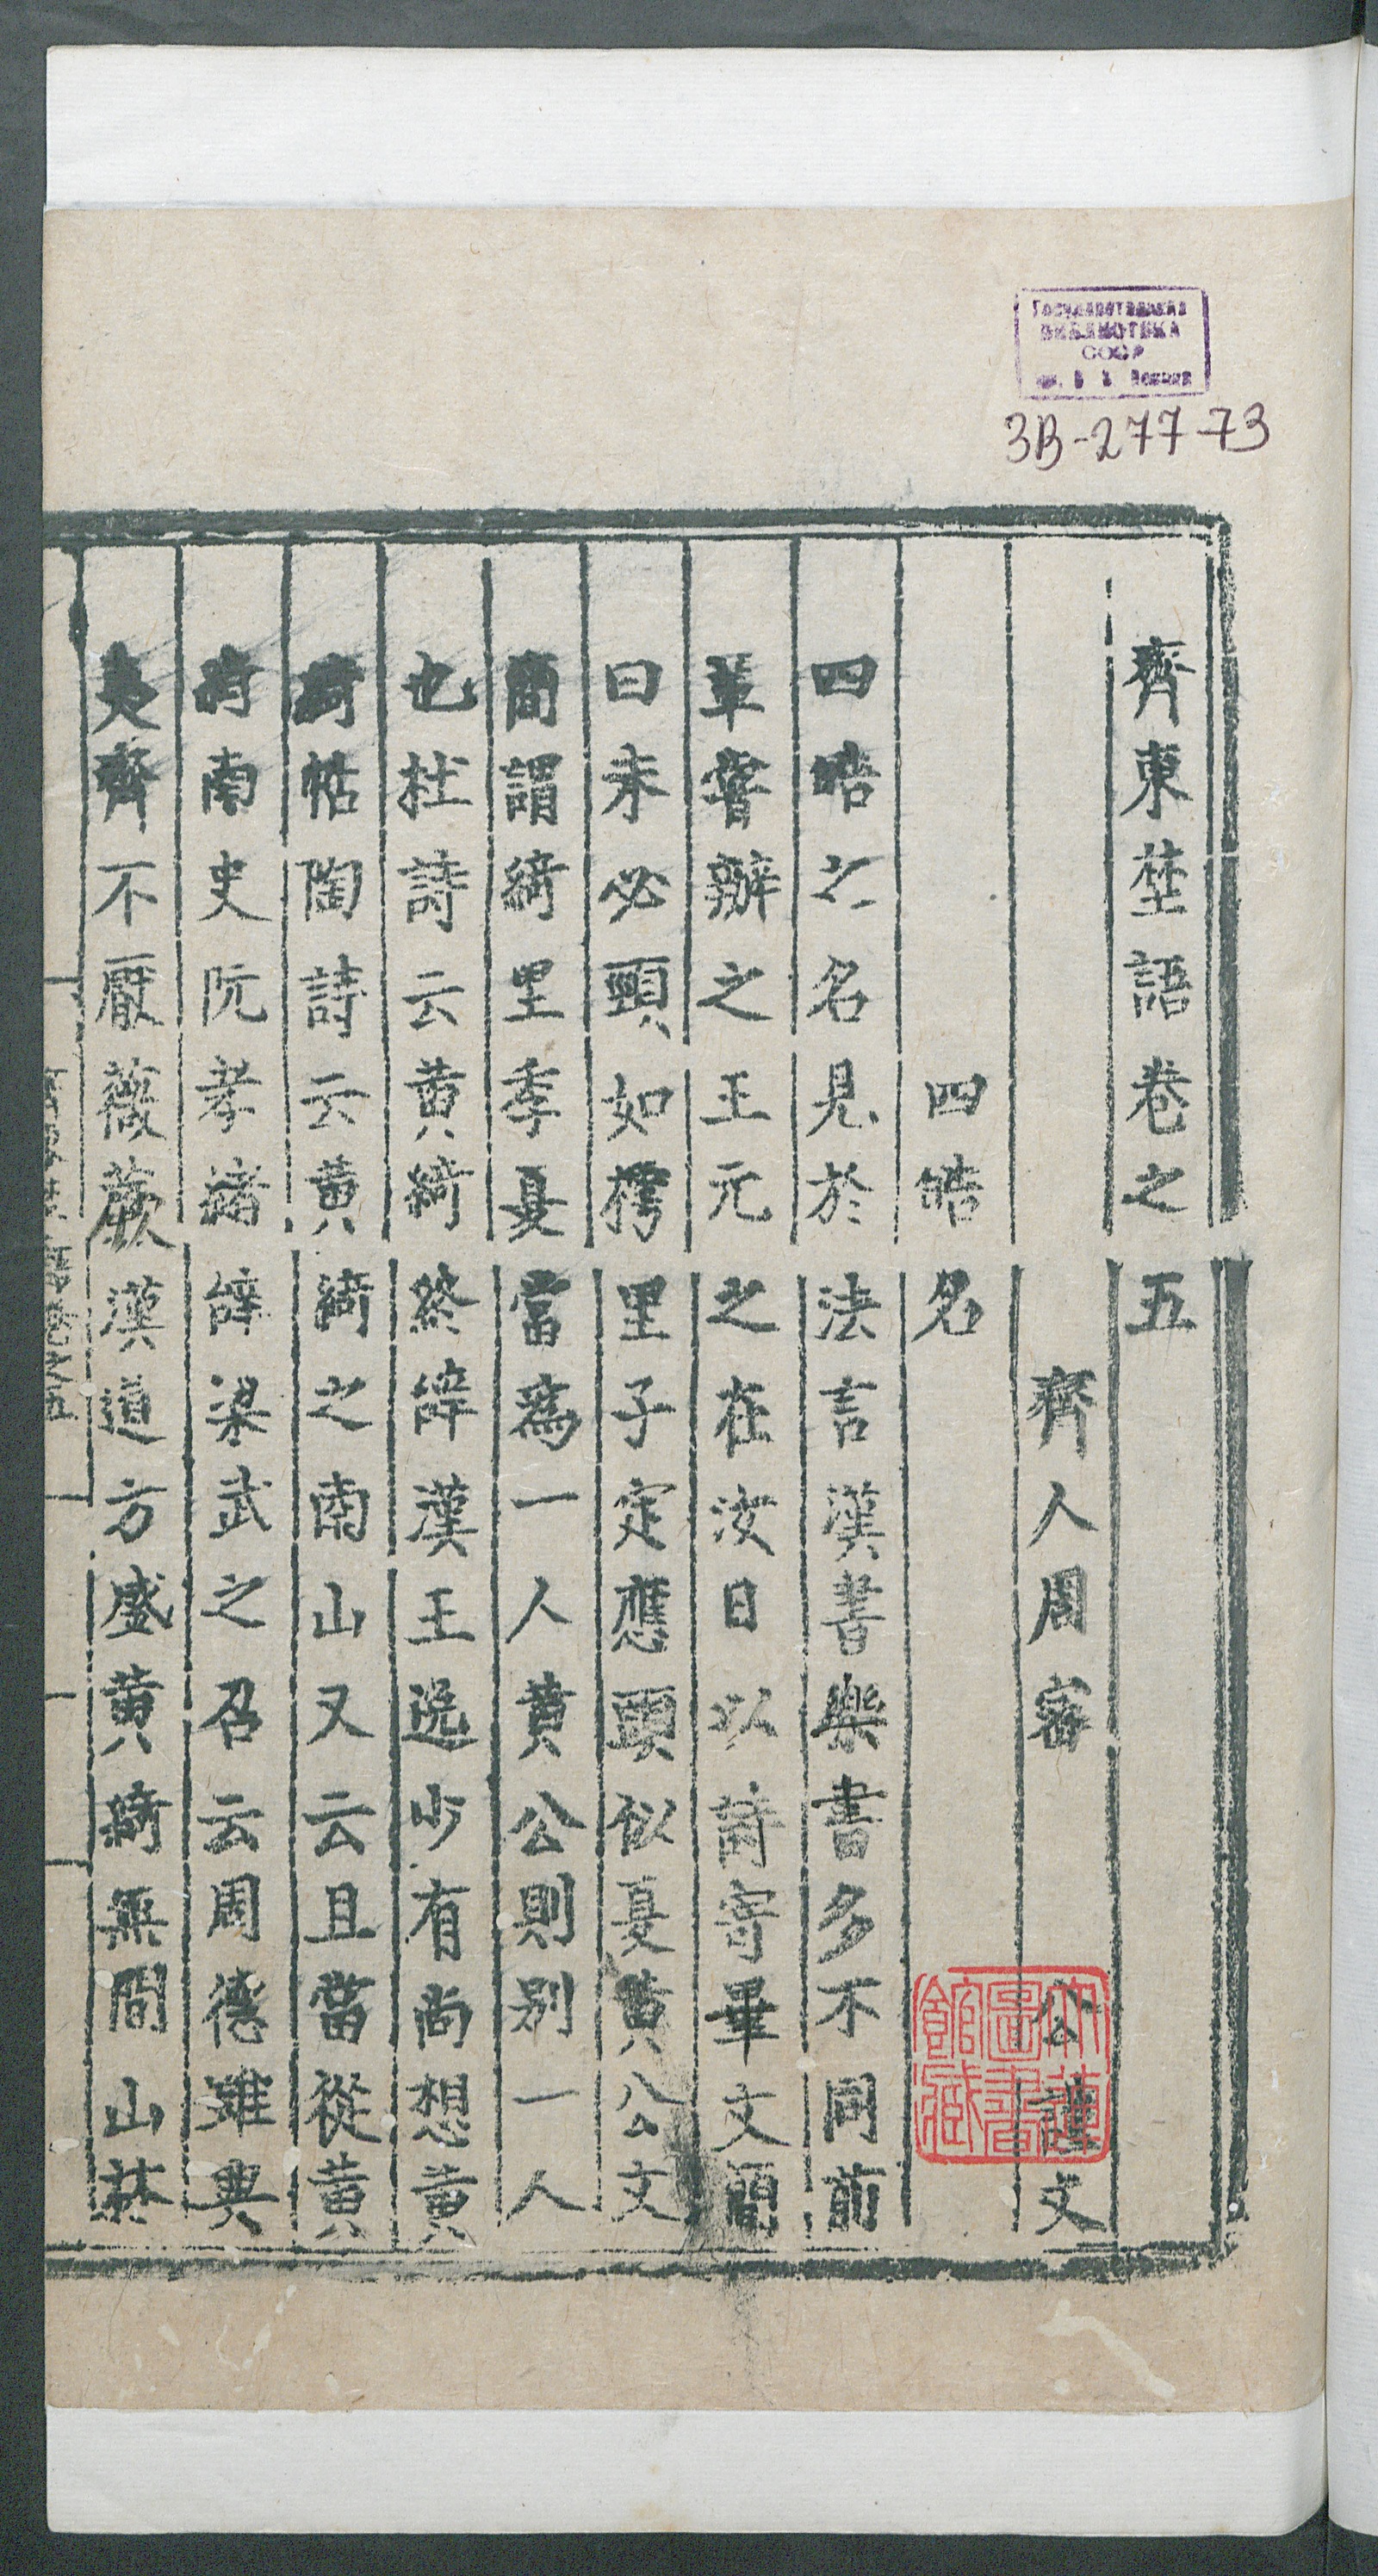 Государственная
БИБЛИОТЕКА
СССР
им. В. И. Ленина
3В-277-73
齊東埜語卷之五
齊人周密 公謹文
四皓名
四皓之名見於法言漢書樂書多不同前
輩嘗辦之王元之在汝日以詩寄畢文簡
曰未必頸如樗里子定應頭似夏黃公文
簡謂綺里季夏當爲一人黄公則別一人
也杜詩云黄綺終辭漢王逸少有尚想黄
綺帖陶詩云黄綺之南山又云且當從黄
綺南史阮孝緒辭梁武之召云周德雖興
夷齊不厭薇蕨漢道方盛黄綺無悶山林
大連圖書館藏